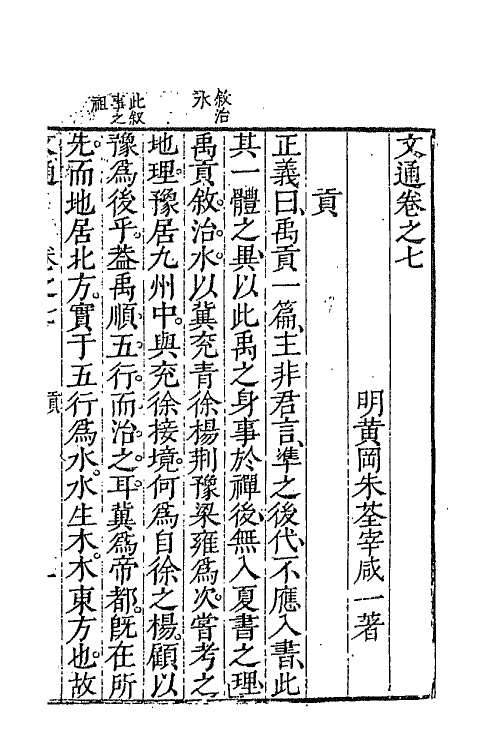 文通卷之七
明黃岡朱荃宰咸一著
貢
正義曰禹貢一篇主非君言準之後代不應入書此
其一體之異以此禹之身事於禪後無入夏書之理
禹貢敘治水以冀兗青徐楊荆豫梁雍爲次嘗考之
地理豫居九州中與兗徐接境何爲自徐之楊顧以
豫爲後乎蓋禹順五行而治之耳冀爲帝都旣在所
先而地居北方實于五行爲水水生木木東方也故
敘治
水
此叙
事之
祖
文通
卷之七
貢
一